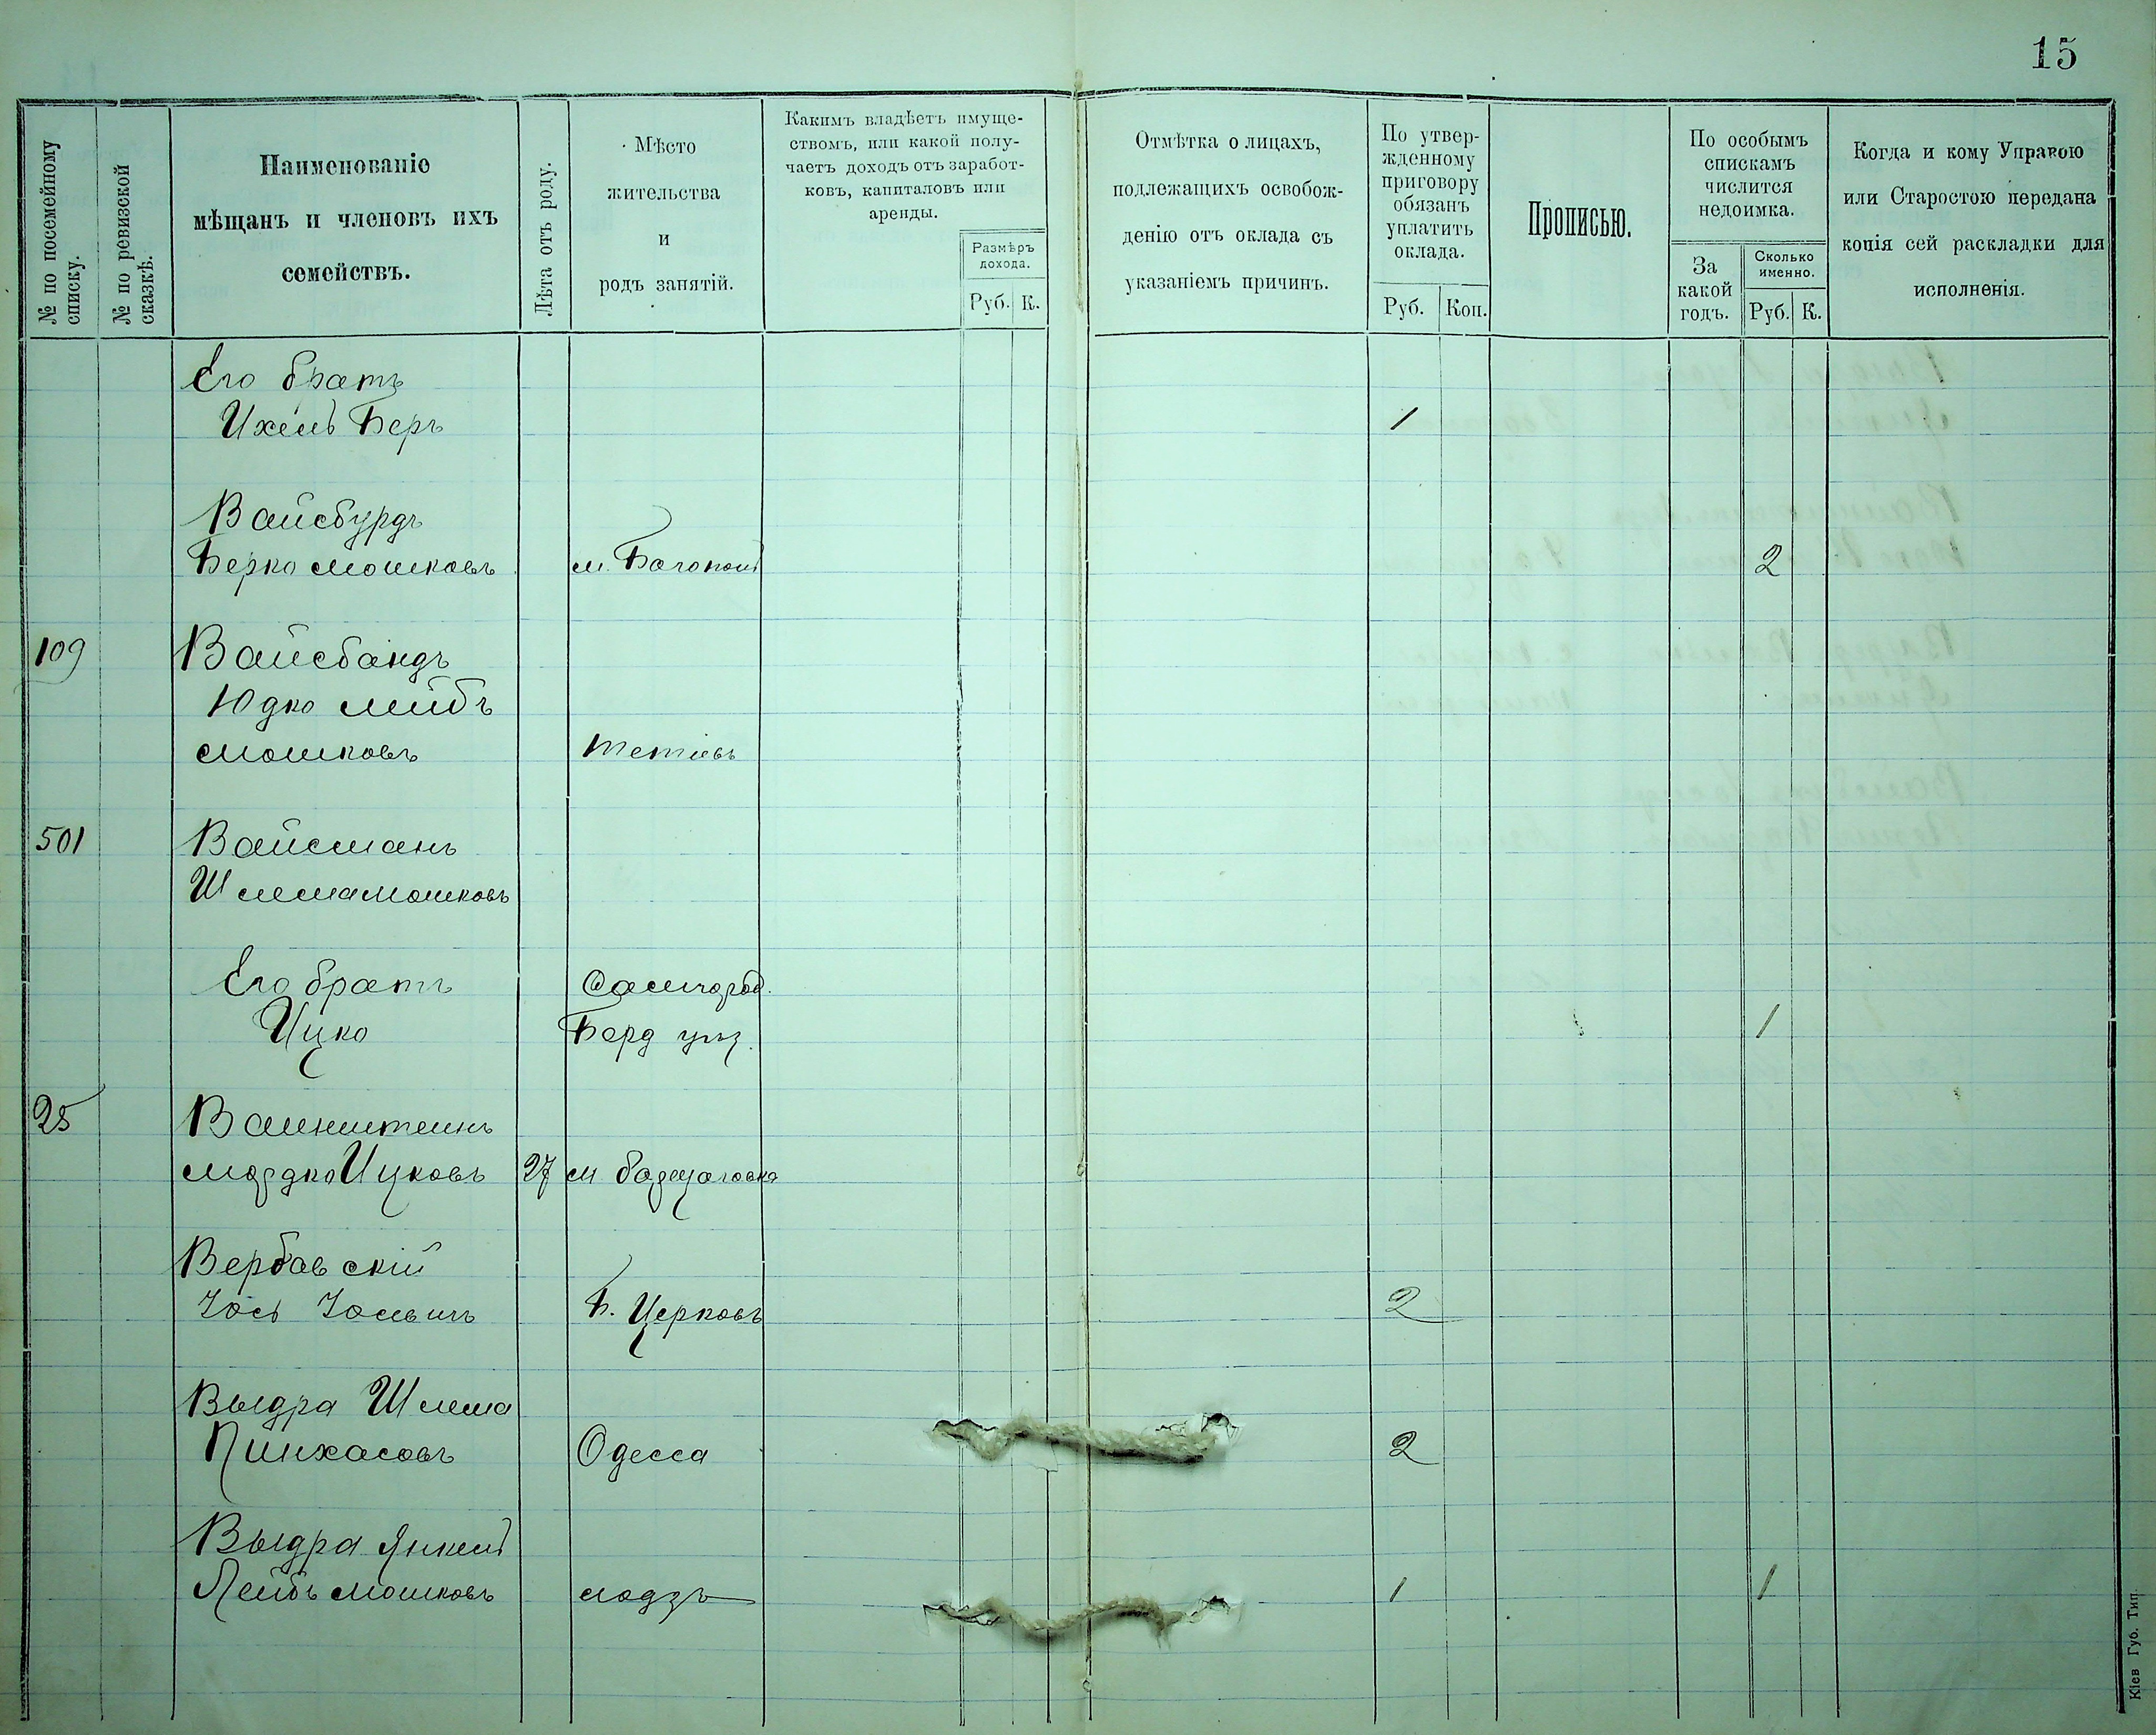 15
№ по посемейному
списку.
№ по ревизской
сказкѣ.
Наименованіе
мѣщанъ и членовъ ихъ
семействъ.
Лѣта отъ роду.
Мѣсто
жительства
и
родъ занятій.
Какимъ владѣетъ имуще-
ствомъ, или какой полу-
чаетъ доходъ отъ заработ-
ковъ, капиталовъ или
аренды.
Размѣръ
дохода.
Руб. К.
Отмѣтка о лицахъ,
подлежащихъ освобож-
денію отъ оклада съ
указаніемъ причинъ.
По утвер-
жденному
приговору
обязанъ
уплатить
оклада.
Руб. Коп.
Прописью.
По особымъ
спискамъ
числится
недоимка.
За
какой
годъ.
Сколько
именно.
Руб. К.
Когда и кому Управою
или Старостою передана
копія сей раскладки для
исполненія.
Его братъ
Ихель Беръ 1
Вайсбурдъ
Берко Мошковъ м. 2
109 Вайсбандъ
Юдко Лейбъ
Мошковъ Тетіевъ
501 Вайсманъ
Шлема Мошковъ
Его братъ Самгород.
Ицко Берд уѣз. 1
25 Вайнштейнъ
Мордко Ицковъ 27 м Борщаговка
Вербовскій
Іось Б. Церковь 2
Выдра Шлема
Пинхасовъ Одесса 2
Выдра Янкель
Лейбъ Мошковъ Лодзь 1 1
Кіев Губ. Тип.